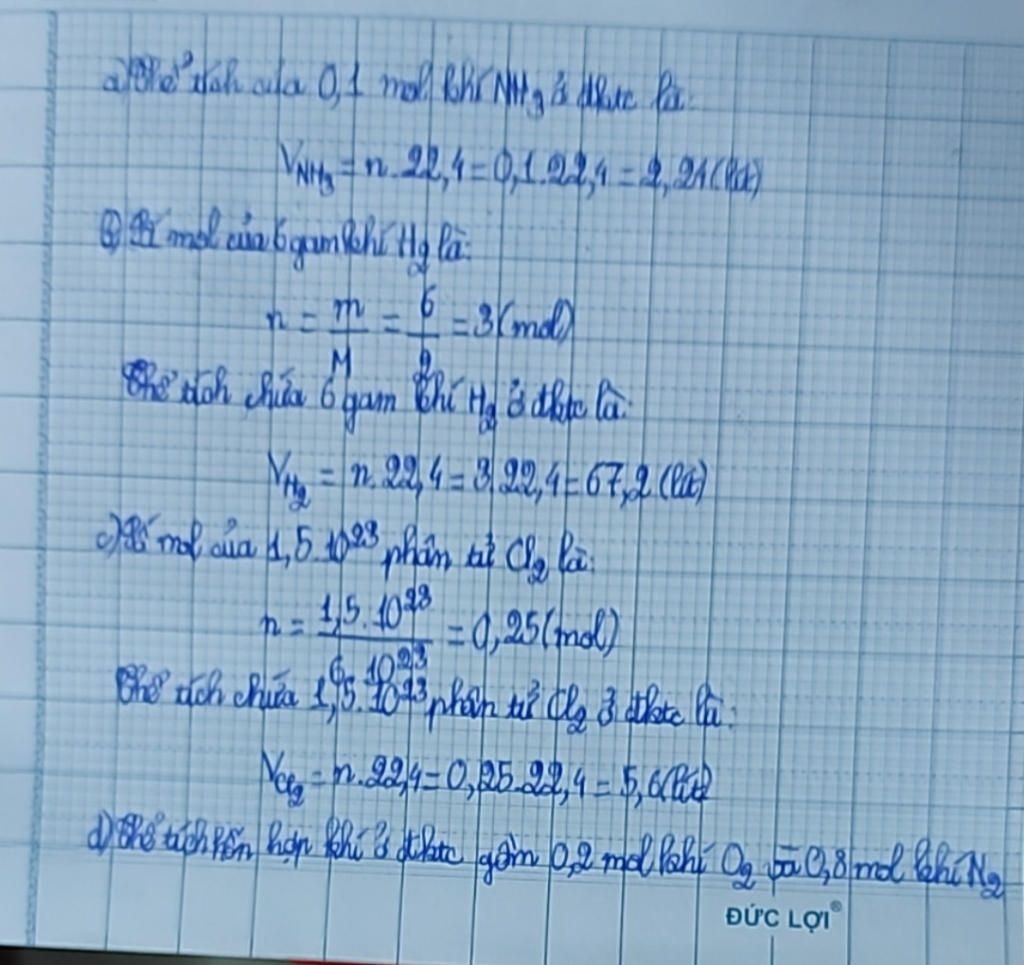 a) Thể tích của 0,1 mol khí NH3 ở đktc là:
V_NH3 = n.22,4 = 0,1.22,4 = 2,24 (lít)
b) Số mol của 6 gam khí H2 là:
n = m/M = 6/2 = 3 (mol)
Thể tích chứa 6 gam khí H2 ở đktc là:
V_H2 = n.22,4 = 3.22,4 = 67,2 (lít)
c) Số mol của 1,5.10^23 phân tử Cl2 là:
n = 1,5.10^23/6.10^23 = 0,25 (mol)
Thể tích chứa 1,5.10^23 phân tử Cl2 ở đktc là:
V_Cl2 = n.22,4 = 0,25.22,4 = 5,6 (lít)
d) Thể tích hỗn hợp khí ở đktc gồm 0,2 mol khí O2 và 0,8 mol khí N2
ĐỨC LỢI®